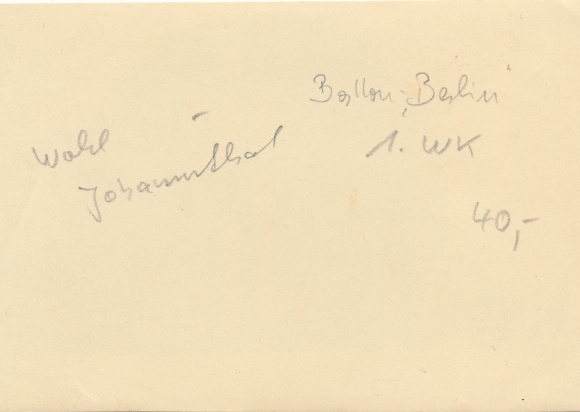 Ballon „Berlin“
Wohl
Johannisthal
1. WK
40,-